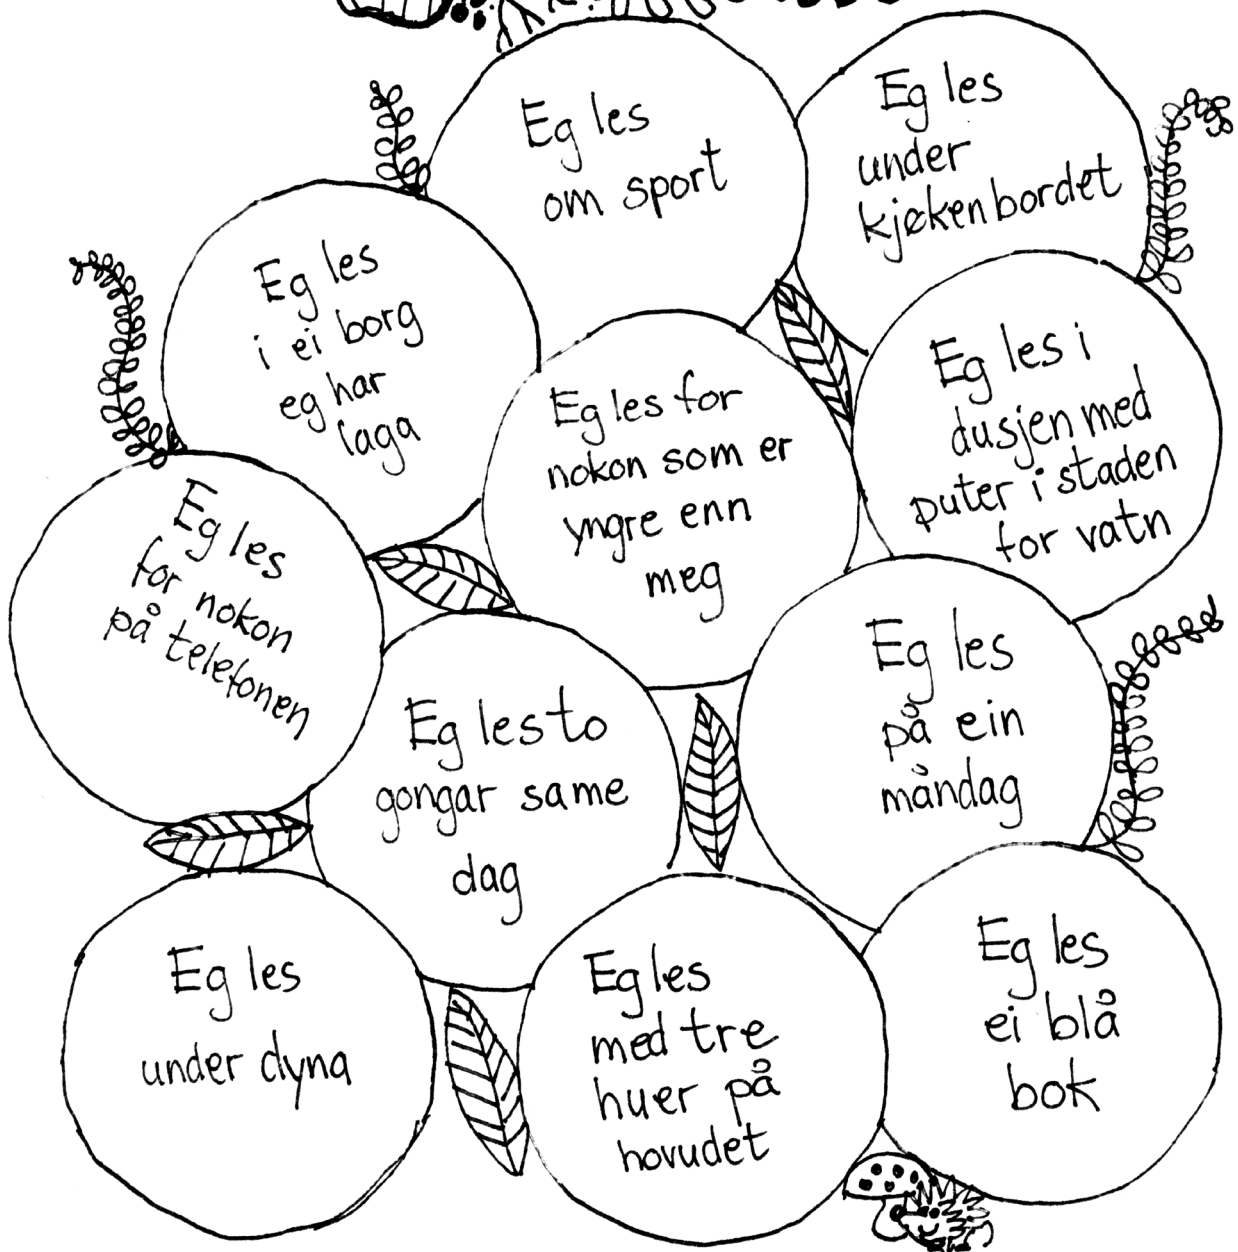 Eg les
om sport
Eg les
under
kjøkenbordet
Eg les
i ei borg
eg har
laga
Eg les for
nokon som er
yngre enn
meg
Eg les i
dusjen med
puter i staden
for vatn
Eg les
for nokon
på telefonen
Eg les to
gongar same
dag
Eg les
på ein
måndag
Eg les
under dyna
Eg les
med tre
huer på
hovudet
Eg les
ei blå
bok